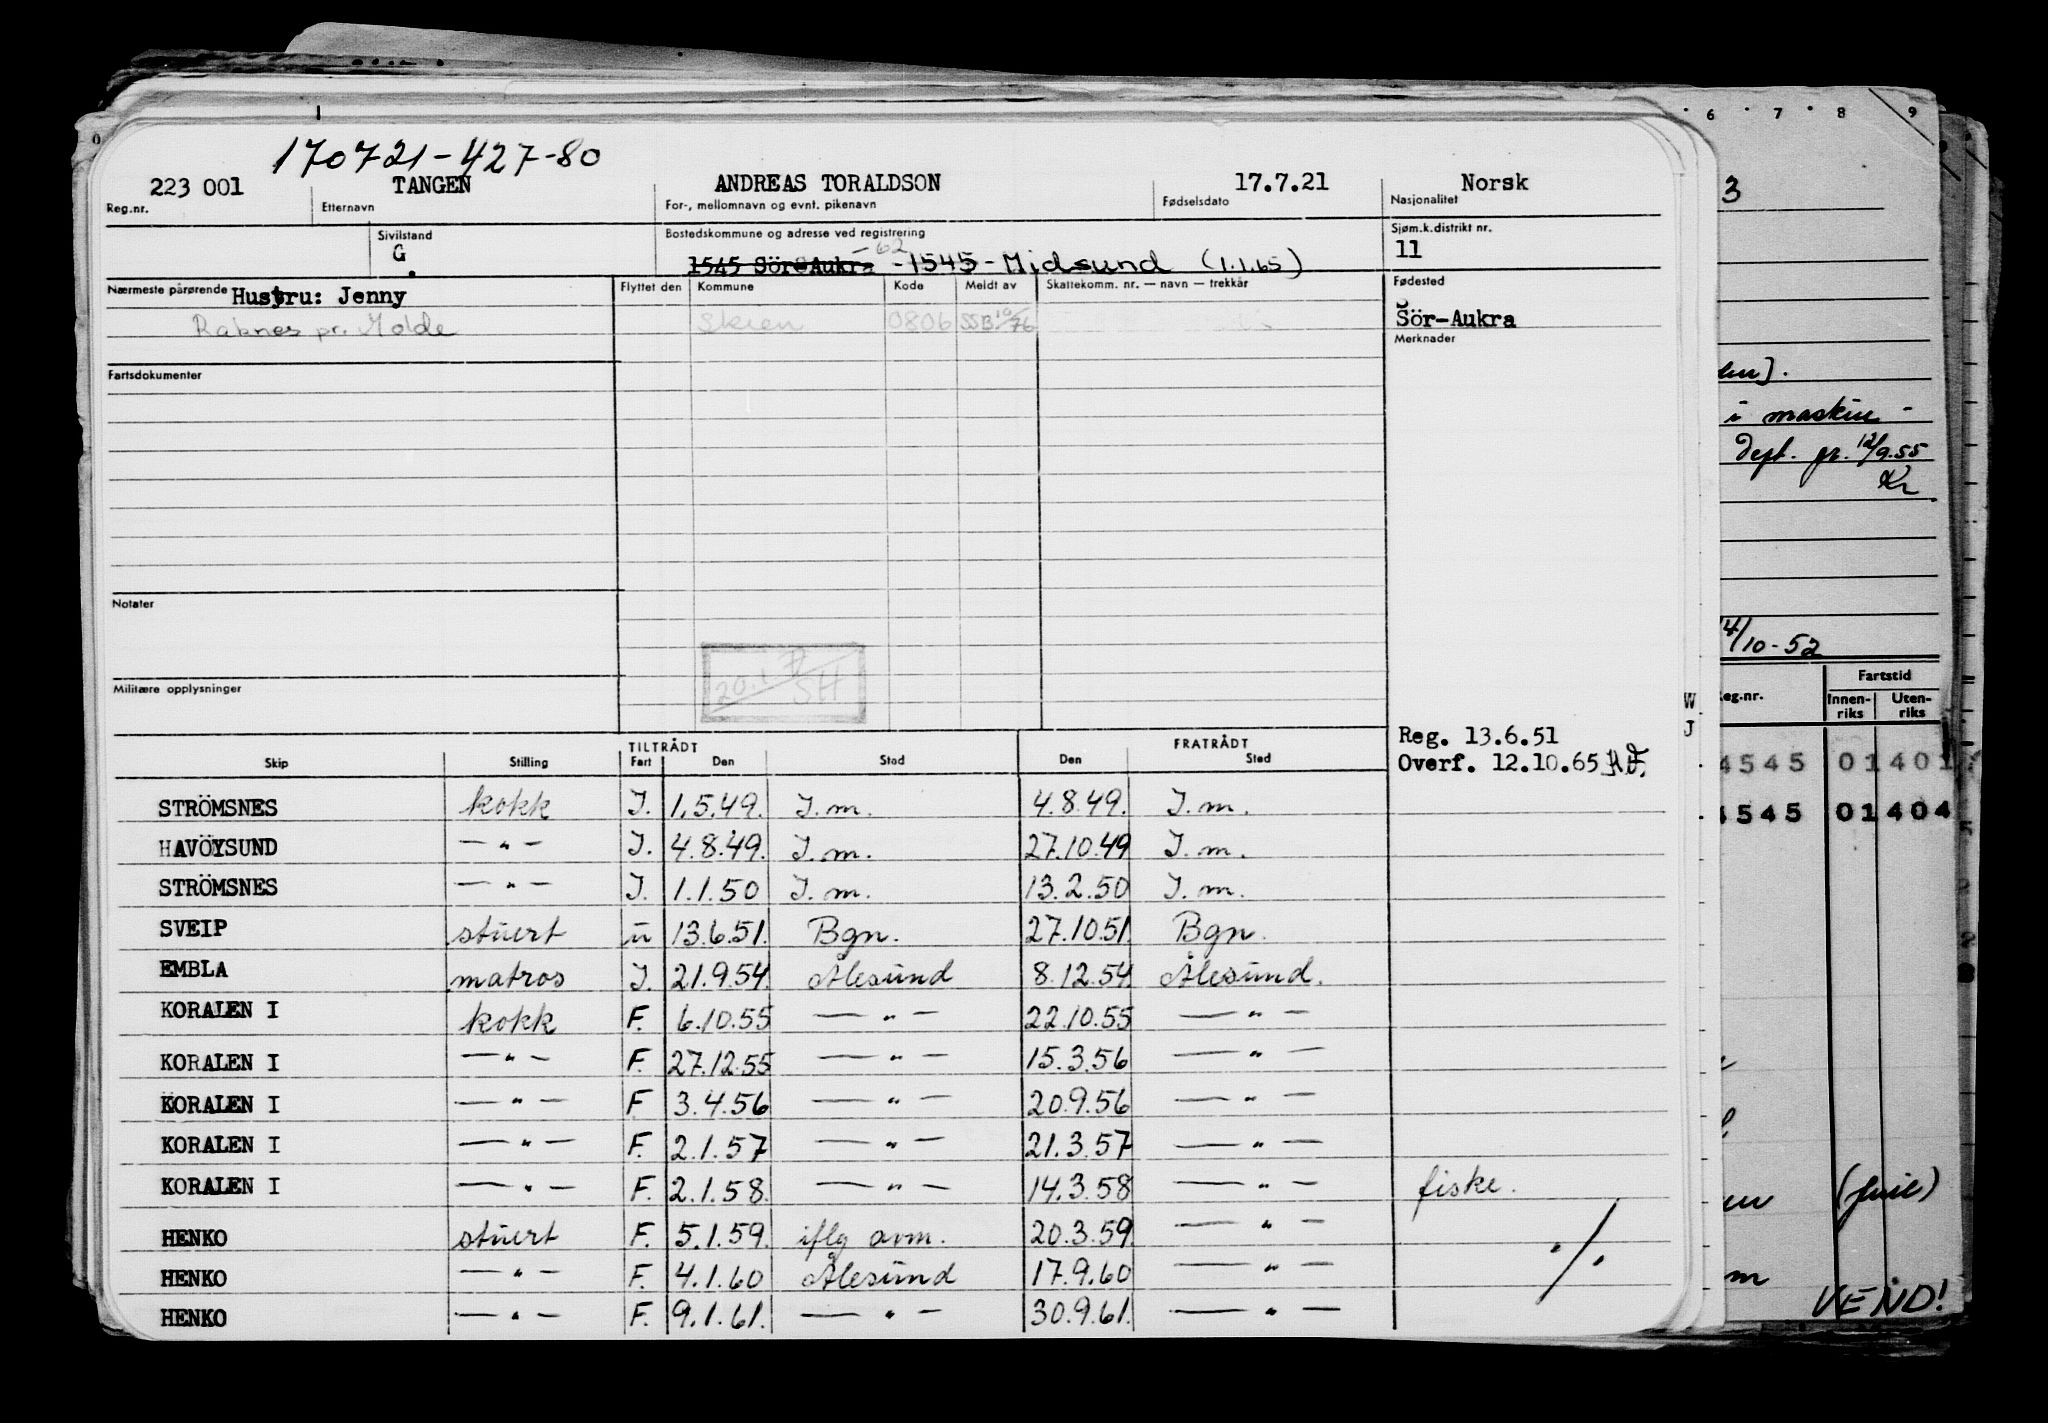 170721-427-80
223 001 TANGEN ANDREAS TORALDSON 17.7.21 Norsk
Reg.nr. Etternavn For-, mellomnavn og evnt. pikenavn Fødselsdato Nasjonalitet
Sivilstand Bostedskommune og adresse ved registrering Sjøm.k.distrikt nr.
G. 1545 Sör-Aukra -62 -1545- Midsund (1.1.65) 11
Nærmeste pårørende Hustru: Jenny Flyttet den Kommune Kode Meldt av Skattekomm. nr. — navn — trekkår Fødested
Raknes pr. Molde Skien 0806 SSB 10/76 Sör-Aukra
Merknader
Fartsdokumenter
Notater
20.1.77
SH
Militære opplysninger
Reg. 13.6.51
Overf. 12.10.65
TILTRÅDT FRATRÅDT
Skip Stilling Fart Den Sted Den Sted
STRÖMSNES kokk I. 1.5.49. I.m. 4.8.49. I.m.
HAVÖYSUND — " — I. 4.8.49. I.m. 27.10.49 I.m.
STRÖMSNES — " — I. 1.1.50 I.m. 13.2.50 I.m.
SVEIP stuert u 13.6.51. Bgn. 27.10.51. Bgn.
EMBLA matros I. 21.9.54. Ålesund 8.12.54. Ålesund.
KORALEN I kokk F. 6.10.55 — " — 22.10.55 — " —
KORALEN I — " — F. 27.12.55 — " — 15.3.56 — " —
KORALEN I — " — F 3.4.56 — " — 20.9.56 — " —
KORALEN I — " — F. 2.1.57 — " — 21.3.57 — " —
KORALEN I — " — F. 2.1.58. — " — 14.3.58 — " — fiske.
HENKO stuert F. 5.1.59. iflg avm. 20.3.59. — " — ./.
HENKO — " — F. 4.1.60 Ålesund 17.9.60 — " —
HENKO — " — F. 9.1.61. — " — 30.9.61. — " —
6 7 8 9
3
i maskin -
Dept. pr. 12/9.55
Kr.
/10-52
Fartstid
Reg.nr. Innen-riks Uten-riks
W
J
4545 01 401
4545 01 404
VEND!